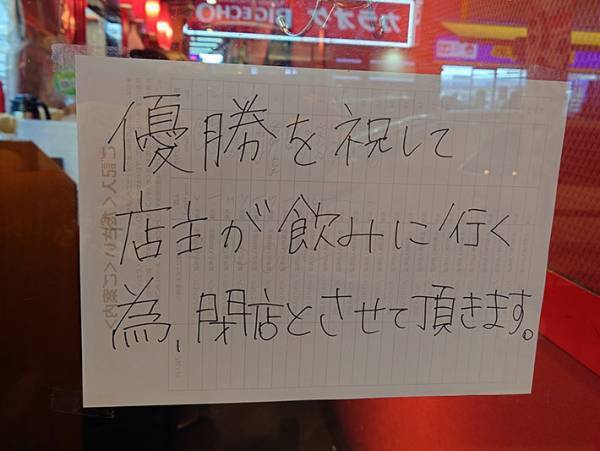 カラオケ BIGECHO
優勝を祝して
店主が飲みに行く
為、閉店とさせて頂きます。